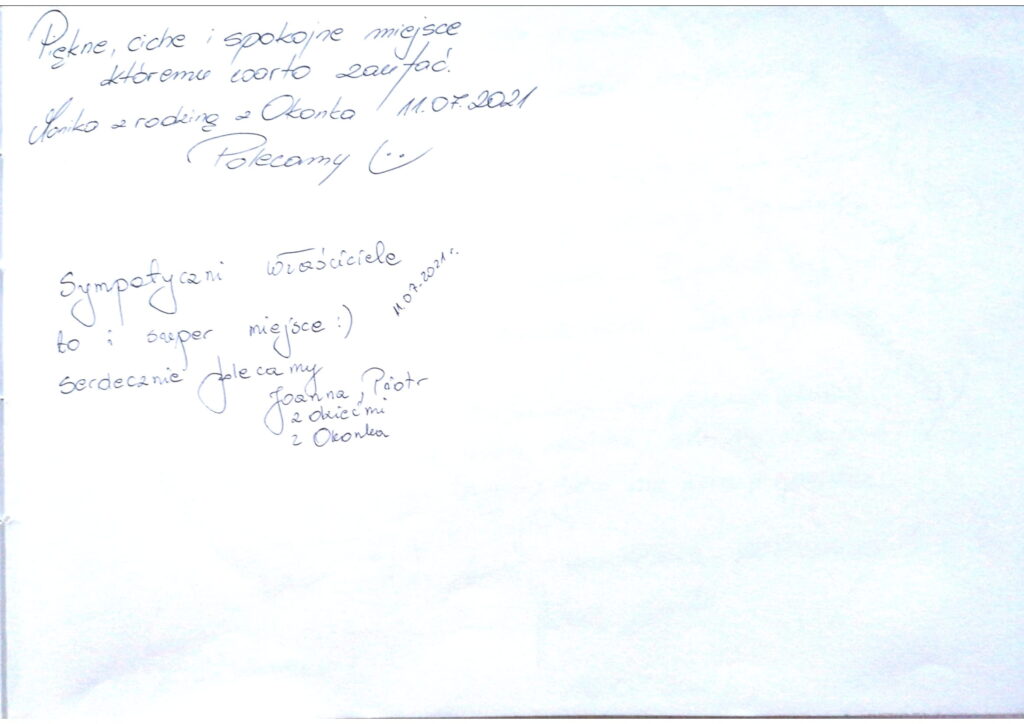 Piękne, ciche i spokojne miejsce
któremu warto zaufać.
Monika z rodziną z Okonka 11.07.2021
Polecamy (¨)
Sympatyczni właściciele
11.07.2021 r.
to i super miejsce :)
serdecznie polecamy
Joanna, Piotr
z dziećmi
z Okonka